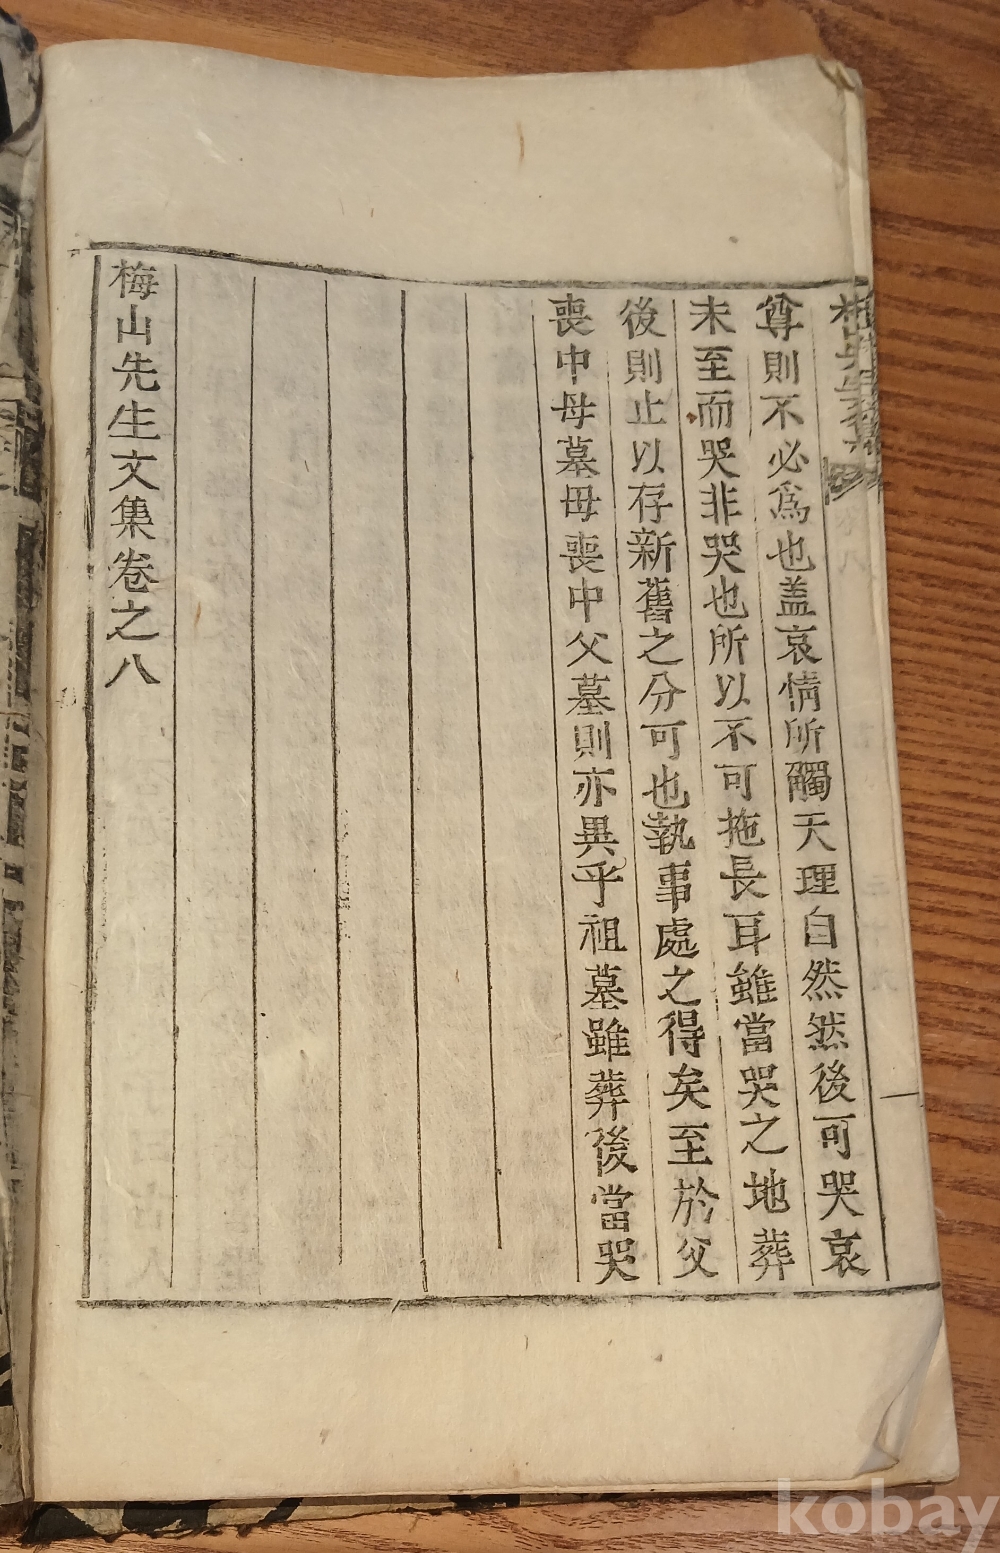 尊則不必爲也盖哀情所觸天理自然然後可哭哀
未至而哭非哭也所以不可拖長耳雖當哭之地葬
後則止以存新舊之分可也執事處之得矣至於父
喪中母墓母喪中父墓則亦異乎祖墓雖葬後當哭
梅山先生文集卷之八
kobay